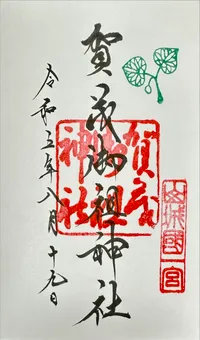 賀茂御祖神社
賀茂
神社
山城國一宮
令和五年八月十九日